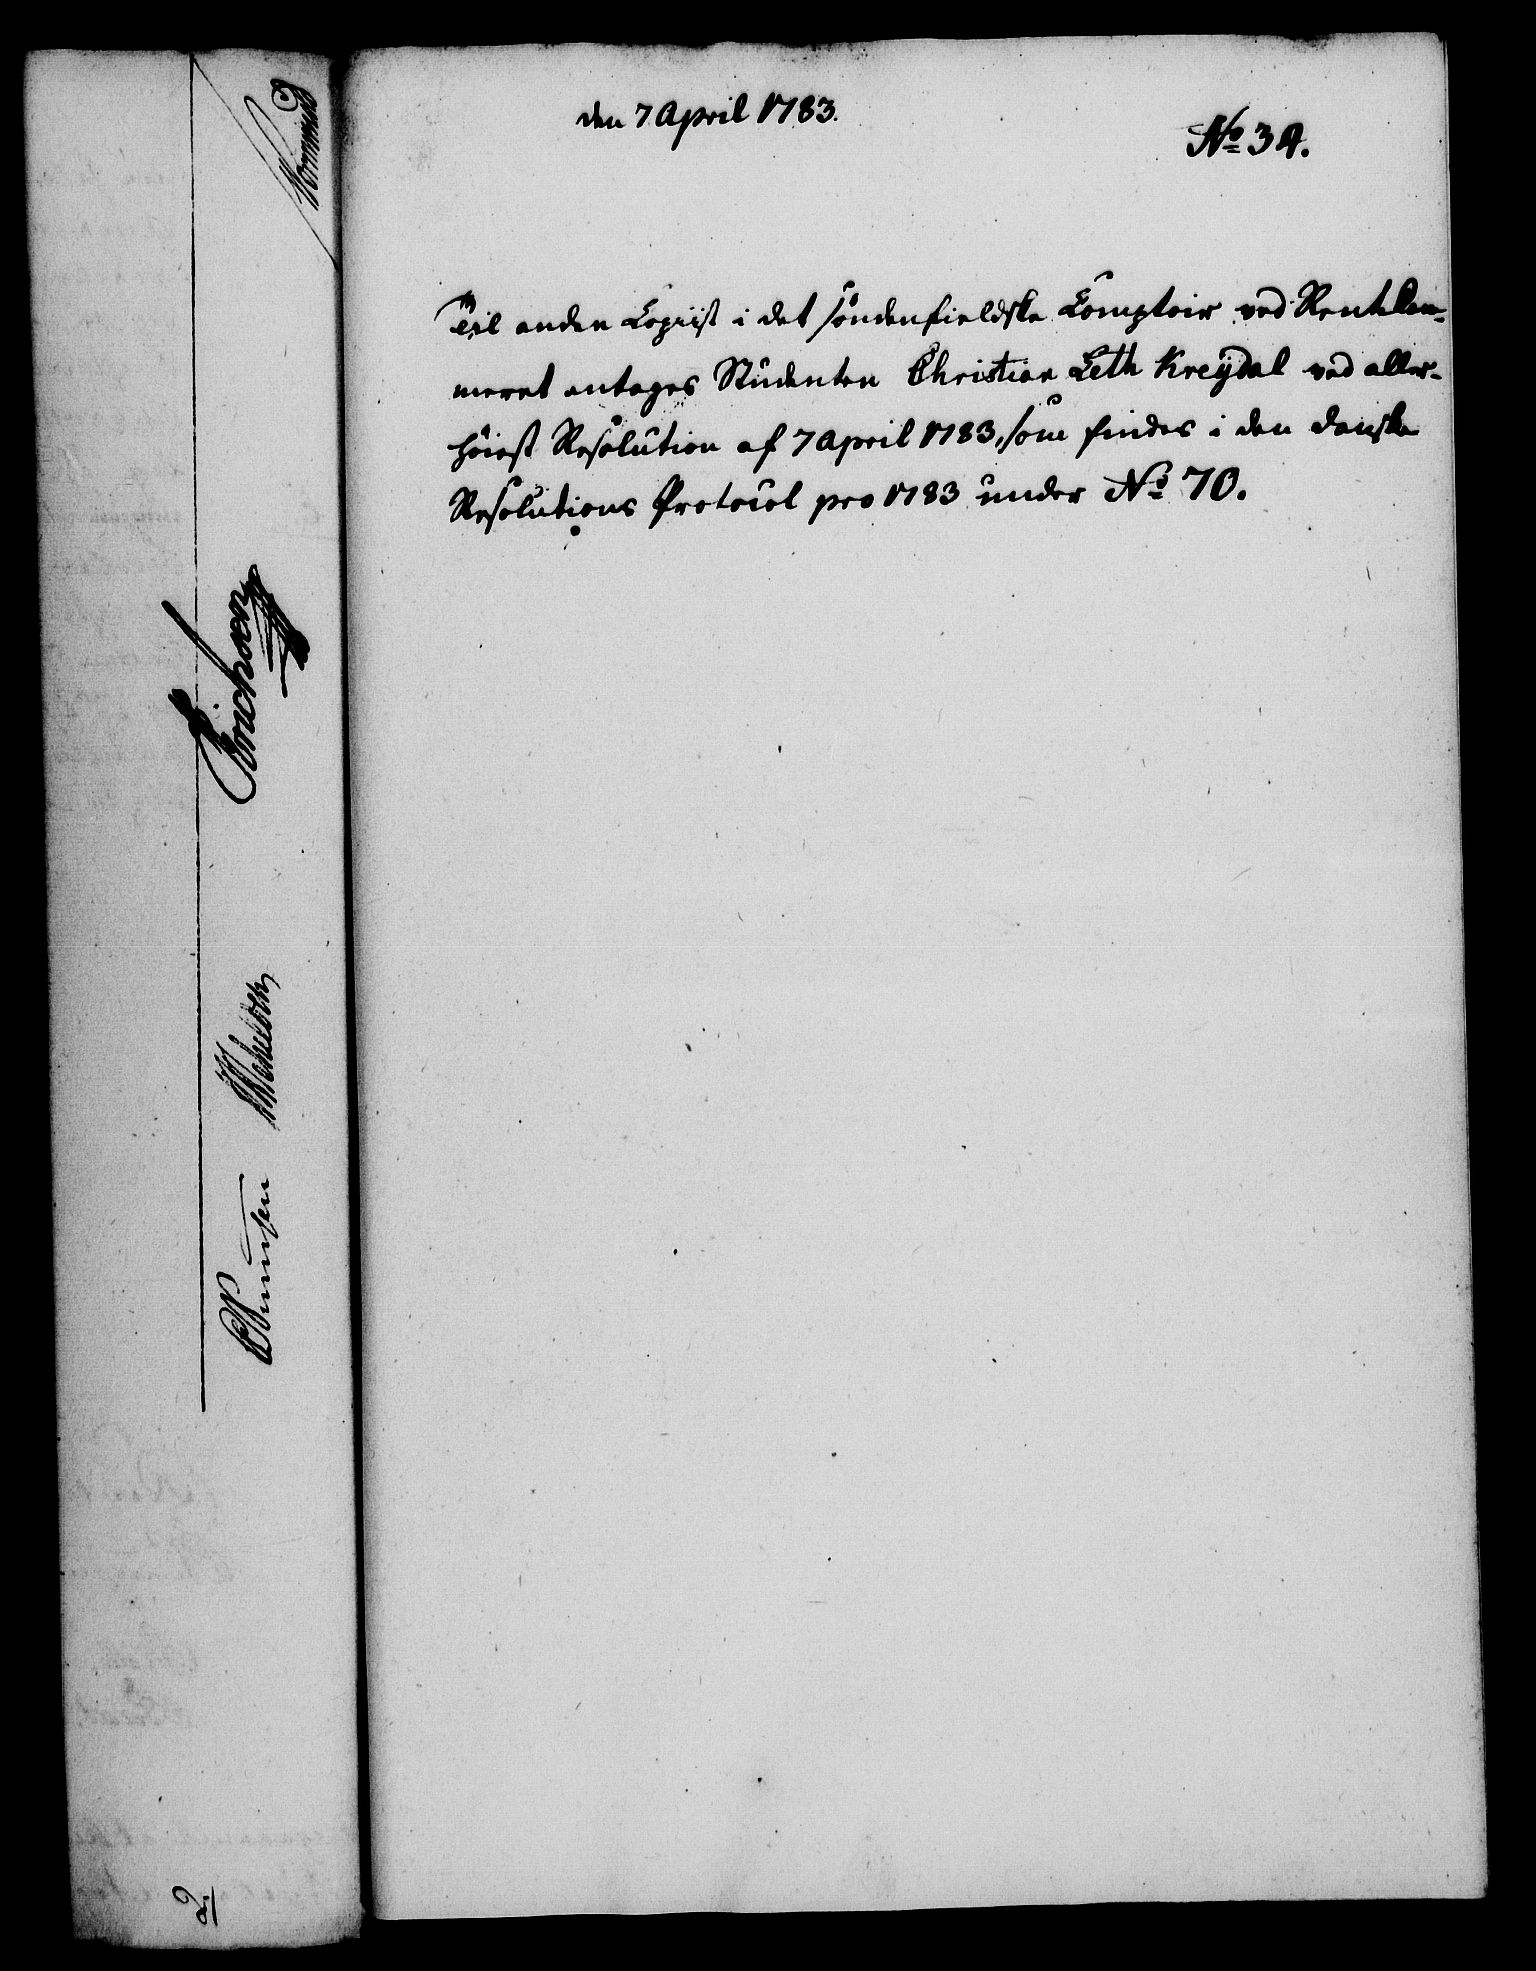 den 7 April 1783.
No 34.
Til anden Copiist i det söndenfieldske Comptoir ved Rentekam-
meret antages Studenten Christian Leth Kreÿdal ved aller-
höiest Resolution af 7 April 1783, som findes i den danske
Resolutions Protocol pro 1783 under No 70.
Erichsen
2